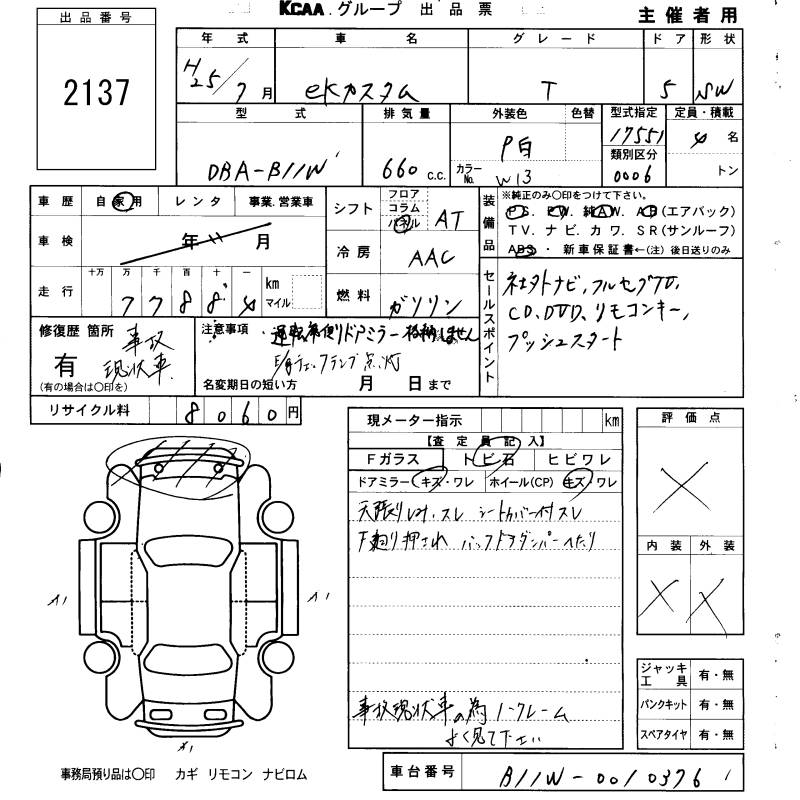 KCAA.グループ 出品票
主催者用
出品番号
2137
年式 車名 グレード ドア 形状
H25/7月 eKカスタム T 5 SW
型式 排気量 外装色 色替 型式指定 定員・積載
DBA-B11W 660 c.c. P白 17551 4名
カラーNo. W13 類別区分 0006 トン
車歴 自家用 レンタ 事業.営業車
シフト フロア コラム パネル AT
装備品 ※純正のみ〇印をつけて下さい。
PS. PW. 純AW. AB(エアバック)
TV. ナビ. カワ. SR(サンルーフ)
ABS ・ 新車保証書←(注) 後日送りのみ
車検 年 月
冷房 AAC
走行 十万 万 千 百 十 一 km マイル
7 7 8 8 4
燃料 ガソリン
セールスポイント
社外ナビ,フルセグTV,
CD,DVD,リモコンキー,
プッシュスタート
修復歴 箇所 事故
有 現状車.
(有の場合は〇印を)
注意事項 運転席側ドアミラー格納しません
E/gチェックランプ点灯
名変期日の短い方 月 日まで
リサイクル料 8060円
現メーター指示 km
【査定員記入】
Fガラス トビ石 ヒビワレ
ドアミラー キズ・ワレ ホイール(CP) キズ・ワレ
天張りしみ.スレ シートカバー付スレ
下廻り押され バックドアダンパーへたり
事故現状車の為ノークレーム
よく見て下さい
評価点
内装 外装
A1 A1
A1
ジャッキ工具 有・無
パンクキット 有・無
スペアタイヤ 有・無
事務局預り品は〇印 カギ リモコン ナビロム
車台番号 B11W-0010376